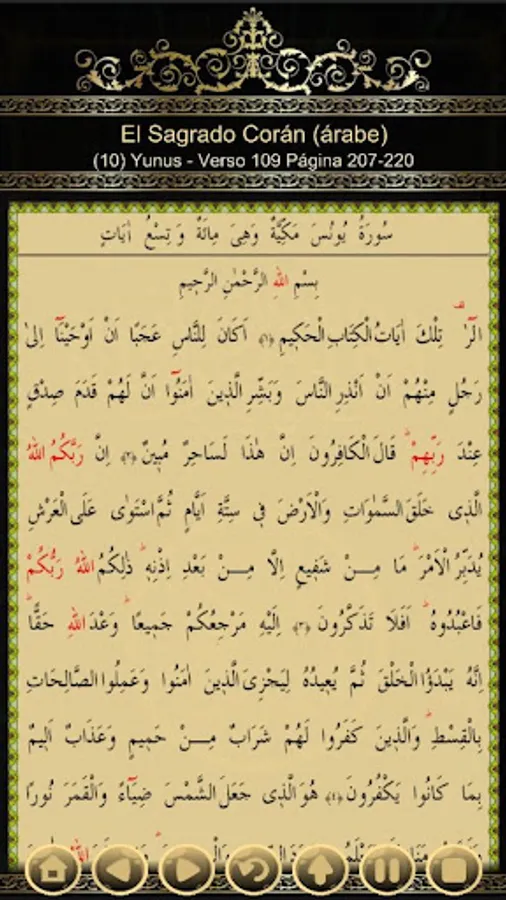 El Sagrado Corán (árabe)
(10) Yunus - Verso 109 Página 207-220
سُورَةُ يُونُسَ مَكِّيَّةٌ وَهِىَ مِائَةٌ وَ تِسْعُ اٰيَاتٍ
بِسْمِ اللهِ الرَّحْمٰنِ الرَّحٖيمِ
الٓرٰ ࣞ تِلْكَ اٰيَاتُ الْكِتَابِ الْحَكٖيمِ ﴿١﴾ اَكَانَ لِلنَّاسِ عَجَبًا اَنْ اَوْحَيْنَٓا اِلٰى
رَجُلٍ مِنْهُمْ اَنْ اَنْذِرِ النَّاسَ وَبَشِّرِ الَّذٖينَ اٰمَنُٓوا اَنَّ لَهُمْ قَدَمَ صِدْقٍ
عِنْدَ رَبِّهِمْؕ قَالَ الْكَافِرُونَ اِنَّ هٰذَا لَسَاحِرٌ مُبٖينٌ ﴿٢﴾ اِنَّ رَبَّكُمُ اللهُ
الَّذٖى خَلَقَ السَّمٰوَاتِ وَالْاَرْضَ فٖى سِتَّةِ اَيَّامٍ ثُمَّ اسْتَوٰى عَلَى الْعَرْشِ
يُدَبِّرُ الْاَمْرَؕ مَا مِنْ شَفٖيعٍ اِلَّا مِنْ بَعْدِ اِذْنِهٖؕ ذٰلِكُمُ اللهُ رَبُّكُمْ
فَاعْبُدُوهُؕ اَفَلَا تَذَكَّرُونَ ﴿٣﴾ اِلَيْهِ مَرْجِعُكُمْ جَمٖيعًاؕ وَعْدَ اللهِ حَقًّاؕ
اِنَّهُ يَبْدَؤُا الْخَلْقَ ثُمَّ يُعٖيدُهُ لِيَجْزِىَ الَّذٖينَ اٰمَنُوا وَعَمِلُوا الصَّالِحَاتِ
بِالْقِسْطِؕ وَالَّذٖينَ كَفَرُوا لَهُمْ شَرَابٌ مِنْ حَمٖيمٍ وَعَذَابٌ اَلٖيمٌ
بِمَا كَانُوا يَكْفُرُونَ ﴿٤﴾ هُوَ الَّذٖى جَعَلَ الشَّمْسَ ضِيَٓاءً وَالْقَمَرَ نُورًا